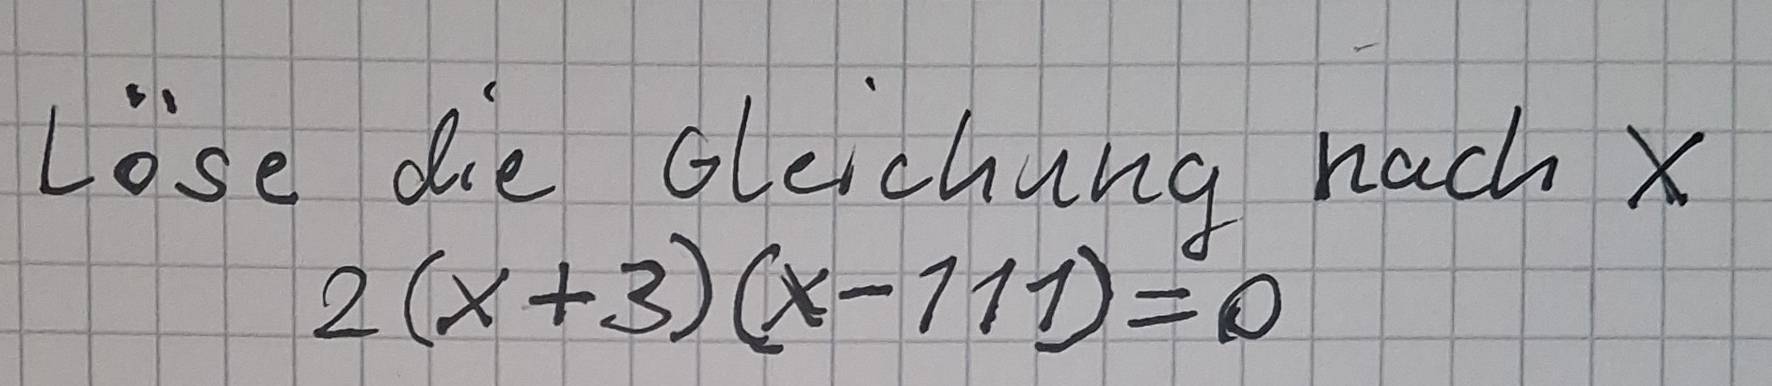 Löse die Gleichung nach x
2(x+3)(x-111)=0